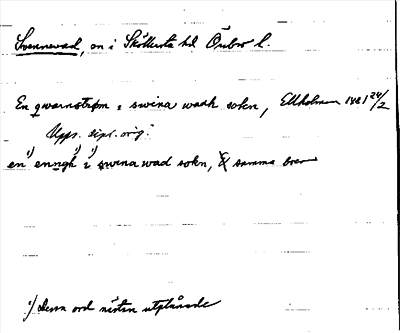 Svennevad, sn i Sköllersta hd Örebro l.
En qwarnstrøm i swina wadh sokn, Ekholmen 1481 24/2
Upps. dipl. orig.
en¹) enngh¹) i¹) swina wad sokn, samma brev
¹) Dessa ord nästan utplånade